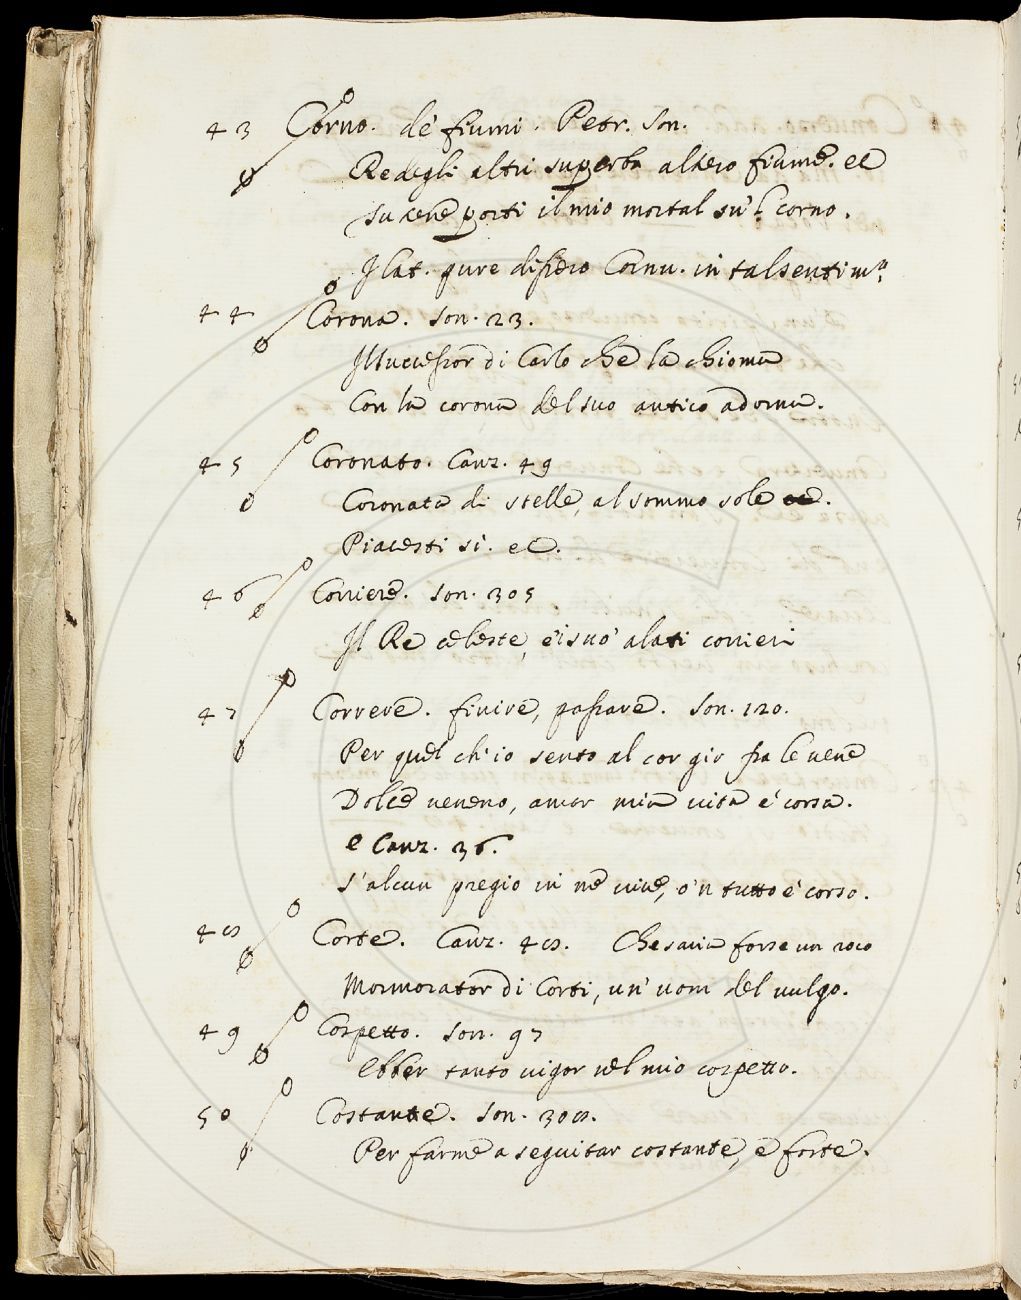 43 Corno. de' fiumi. Petr. Son.
Re degli altri superbo altero fiume. ec
su cene porti il mio mortal su'l corno.
Il lat. pure dissero Cornu. in tal sentim.º
44 Corona. Son. 23.
Il successor di Carlo che la chioma
Con la corona del suo antico adorna.
45 Coronato. Canz. 49
Coronata di stelle, al sommo sole
Piacesti sì. ec.
46 Corriere. Son. 305
Il Re celeste, e' i suo' alati corrieri
47 Correre. finire, passare. Son. 120.
Per quel ch'io sento al cor gir fra le vene
Dolce veneno, amor mia vita é corsa.
e Canz. 36.
S'alcun pregio in me vive, o'n tutto é corso.
48 Corte. Canz. 48. Che saria forse un roco
Mormorator di Corti, un' uom del vulgo.
49 Cospetto. Son. 97
Ebber tanto vigor nel mio cospetto.
50 Costante. Son. 308.
Per farme a seguitar costante, e forte.